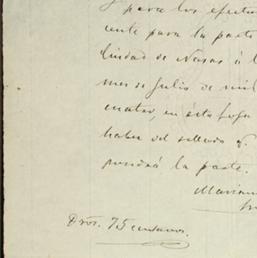 y para los efectos
cente para la parte
Ciudad de Nasas á l
mes de Julio de mil
cuatro, en esta foja
haber del sellado
pondrá la parte.
Marian
Dros. 75 centavos.